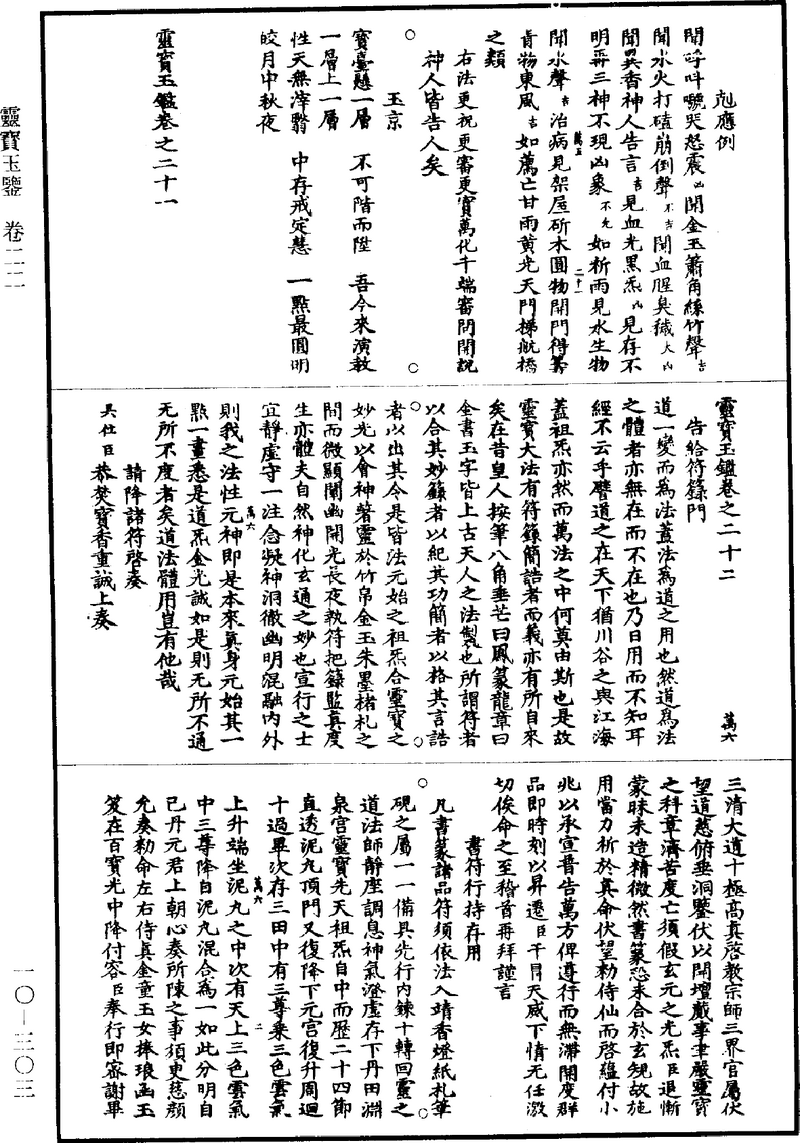 剋應例
聞呼叫號哭怒震凶聞金玉簫角絲竹聲吉
聞水火打磕崩倒聲不吉聞血腥臭穢大凶
聞異香神人告言吉見血光黑炁凶見存不
明再三神不現凶象不允如祈雨見水生物
聞水聲吉治病見架屋斫木圓物開門得筭
肯物東風吉如薦亡甘雨黃光天門梯航橋
之類
右法更祝更審更寶萬化千端審問開說
神人皆告人矣
玉京
寶臺懸一層　不可階而陞　吾今來演教
一層上一層
性天無滓翳　中存戒定慧　一點最圓明
皎月中秋夜
靈寶玉鑑卷之二十一
萬五
二十一
靈寶玉鑑卷之二十二
萬六
告給符籙門
道一變而為法蓋法為道之用也然道為法
之體者亦無在而不在也乃日用而不知耳
經不云乎譬道之在天下猶川谷之與江海
蓋祖炁亦然而萬法之中何莫由斯也是故
靈寶大法有符籙簡誥者而義亦有所自來
矣在昔皇人按筆八角垂芒曰鳳篆龍章曰
全書玉字皆上古天人之法製也所謂符者
以合其妙籙者以紀其功簡者以格其言誥
者以出其令是皆法元始之祖炁合靈寶之
妙光以會神著靈於竹帛金玉朱墨楮札之
間而微顯闡幽開光長夜執符把籙監真度
生亦體夫自然神化玄通之妙也宣行之士
宜靜虛守一注念凝神洞徹幽明混融內外
萬六
則我之法性元神即是本來真身元始其一
點一畫悉是道炁金光誠如是則无所不通
无所不度者矣道法體用豈有他哉
請降諸符啓奏
具位臣　恭焚寶香重誠上奏
三清大道十極高真啓教宗師三界官屬伏
望道慈俯垂洞鑒伏以開壇蕆事聿嚴靈寶
之科章濟苦度亡須假玄元之光炁臣退慚
蒙昧未造精微然書篆恐未合於玄規故施
用當力祈於真命伏望勑侍仙而啓蘊付小
兆以承宣普告萬方俾遵行而無滯開度群
品即時刻以昇遷臣干冒天威下情无任激
切俟命之至稽首再拜謹言
書符行持存用
凡書篆諸品符須依法入靖香燈紙札筆
硯之屬一一備具先行內鍊十轉回靈之
道法師靜座調息神氣澄虛存下丹田淵
泉宮靈寶先天祖炁自中而歷二十四節
直透泥丸頂門又復降下元宮復升周迴
十過畢次存三田中有三尊乘三色雲氣
萬六
二
上升端坐泥丸之中次有天上三色雲氣
中三尊降自泥丸混合為一如此分明自
己丹元君上朝心奏所陳之事須更慈顏
允奏勑命左右侍真金童玉女捧琅函玉
笈在百寶光中降付容臣奉行即密謝畢
靈寶玉鑒　卷二二
一〇—三〇三